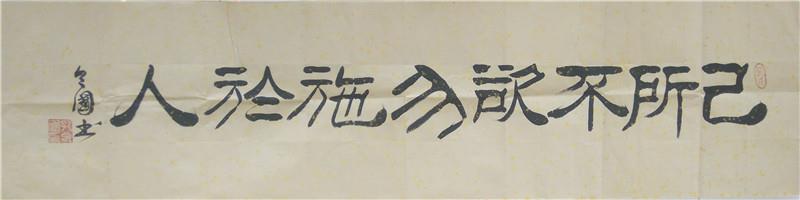 己所不欲勿施於人
國書